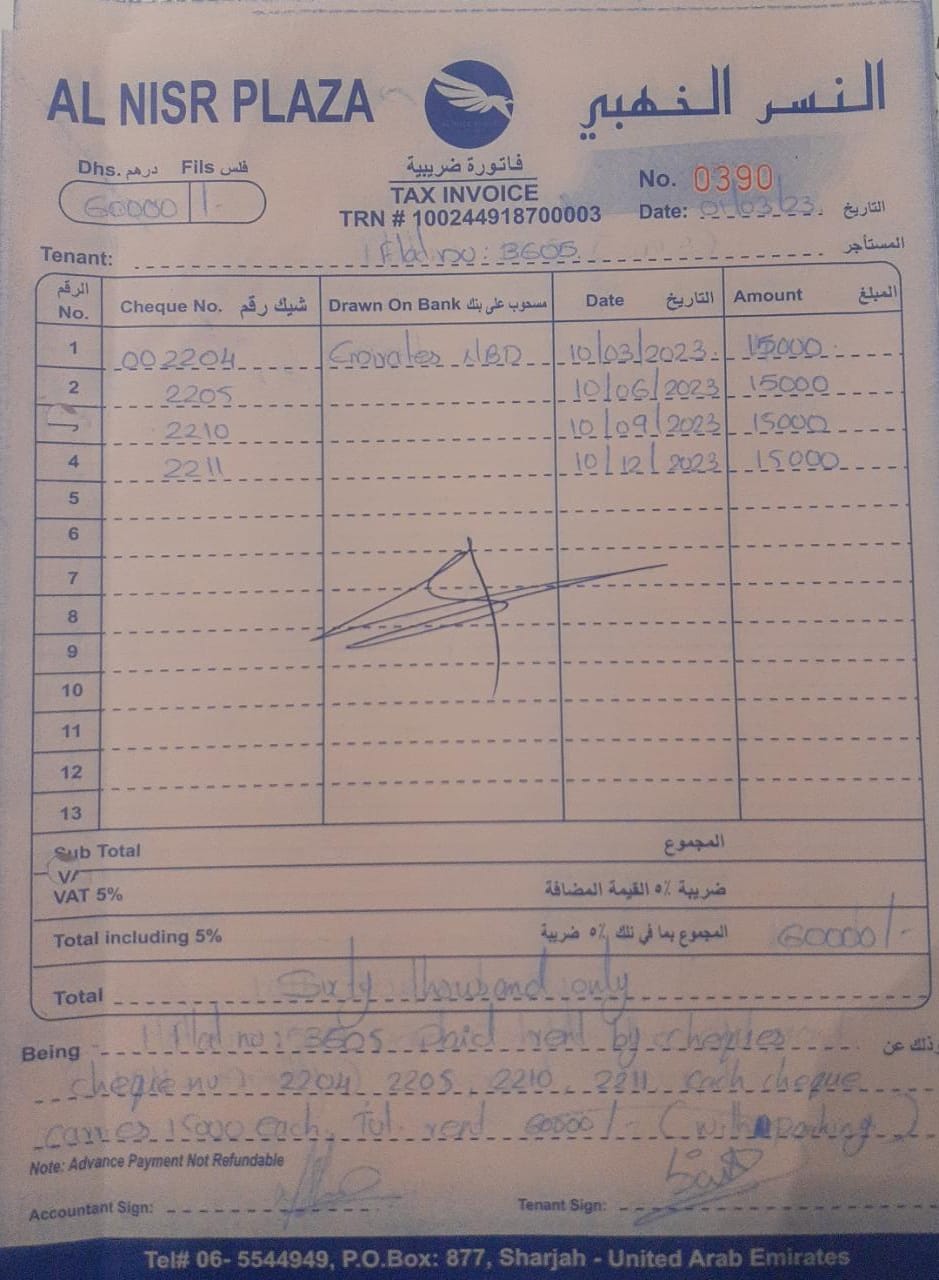 AL NISR PLAZA النسر الذهبي
Dhs. درهم Fils فلس
60000 /-
فاتورة ضريبية
TAX INVOICE
TRN # 100244918700003
No. 0390
Date: 01/03/23. التاريخ
Tenant: Flat no: 3605 المستأجر
الرقم No. Cheque No. شيك رقم Drawn On Bank مسحوب على بنك Date التاريخ Amount المبلغ
1 002204 Emirates NBD 10/03/2023. 15000
2 2205 10/06/2023 15000
2210 10/09/2023 15000
4 2211 10/12/2023 15000
5
6
7
8
9
10
11
12
13
Sub Total المجموع
VAT 5% ضريبة ٥٪ القيمة المضافة
Total including 5% المجموع بما في ذلك ٥٪ ضريبة 60000/-
Total Sixty thousand only
Being Flat no: 3605 paid rent by cheques وذلك عن
cheque no: 2204, 2205, 2210, 2211 each cheque
carries 15000 each, Tot. rent 60000/- (with parking)
Note: Advance Payment Not Refundable
Accountant Sign: Tenant Sign:
Tel# 06- 5544949, P.O.Box: 877, Sharjah - United Arab Emirates